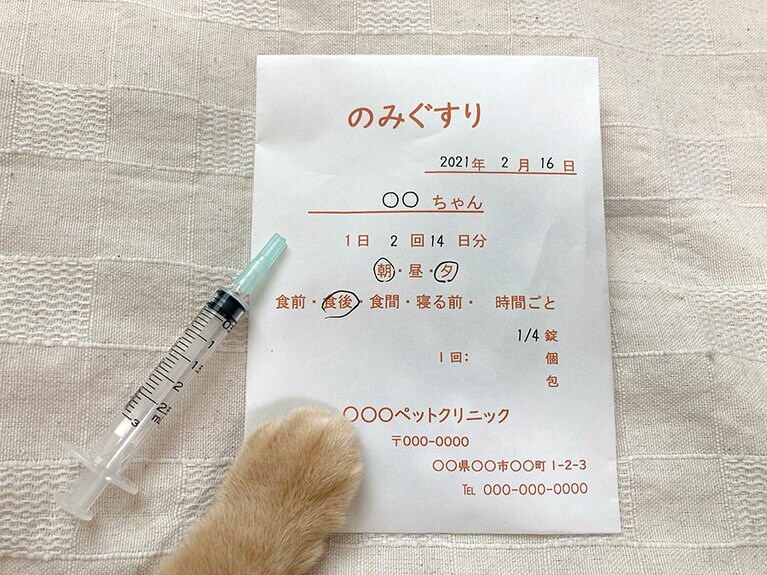 のみぐすり
2021年 2月16日
○○ちゃん
1日 2回14日分
朝・昼・夕
食前・食後・食間・寝る前・ 時間ごと
1/4錠
1回: 個
包
○○○ペットクリニック
〒000-0000
○○県○○市○○町1-2-3
TEL 000-000-0000
0
1
2
3
ml